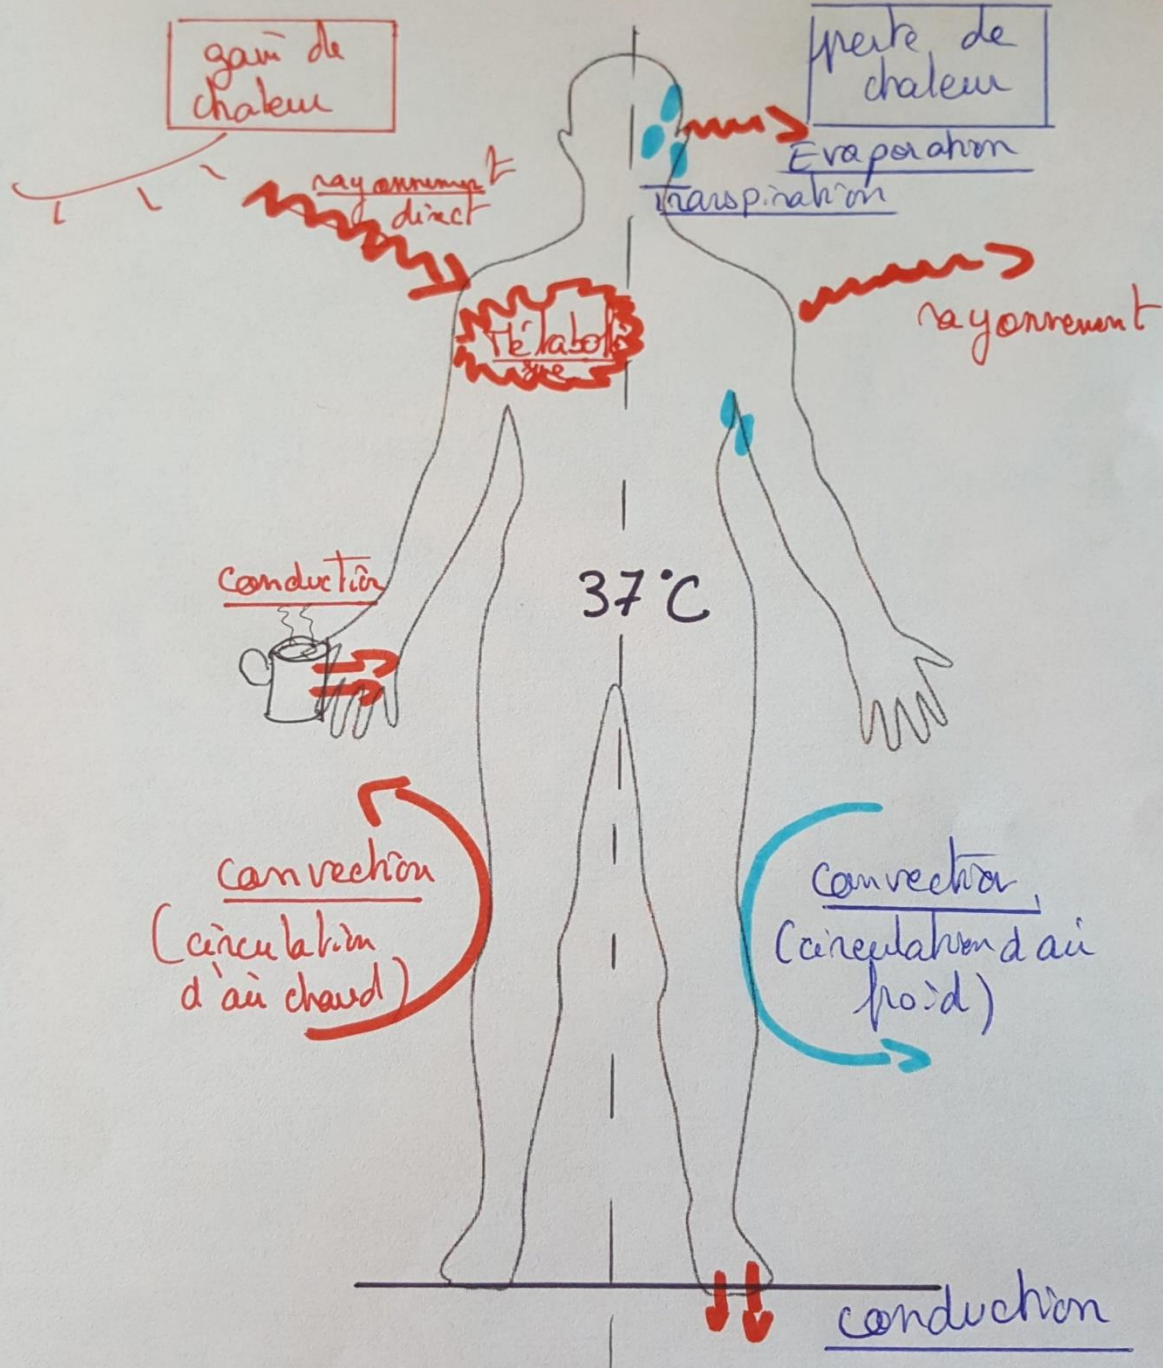 gain de
chaleur
perte de
chaleur
Evaporation
Transpiration
rayonnement
direct
rayonnement
Métabolis
me
conduction
37°C
convection
(circulation
d'air chaud)
convection
(circulation d'air
froid)
conduction